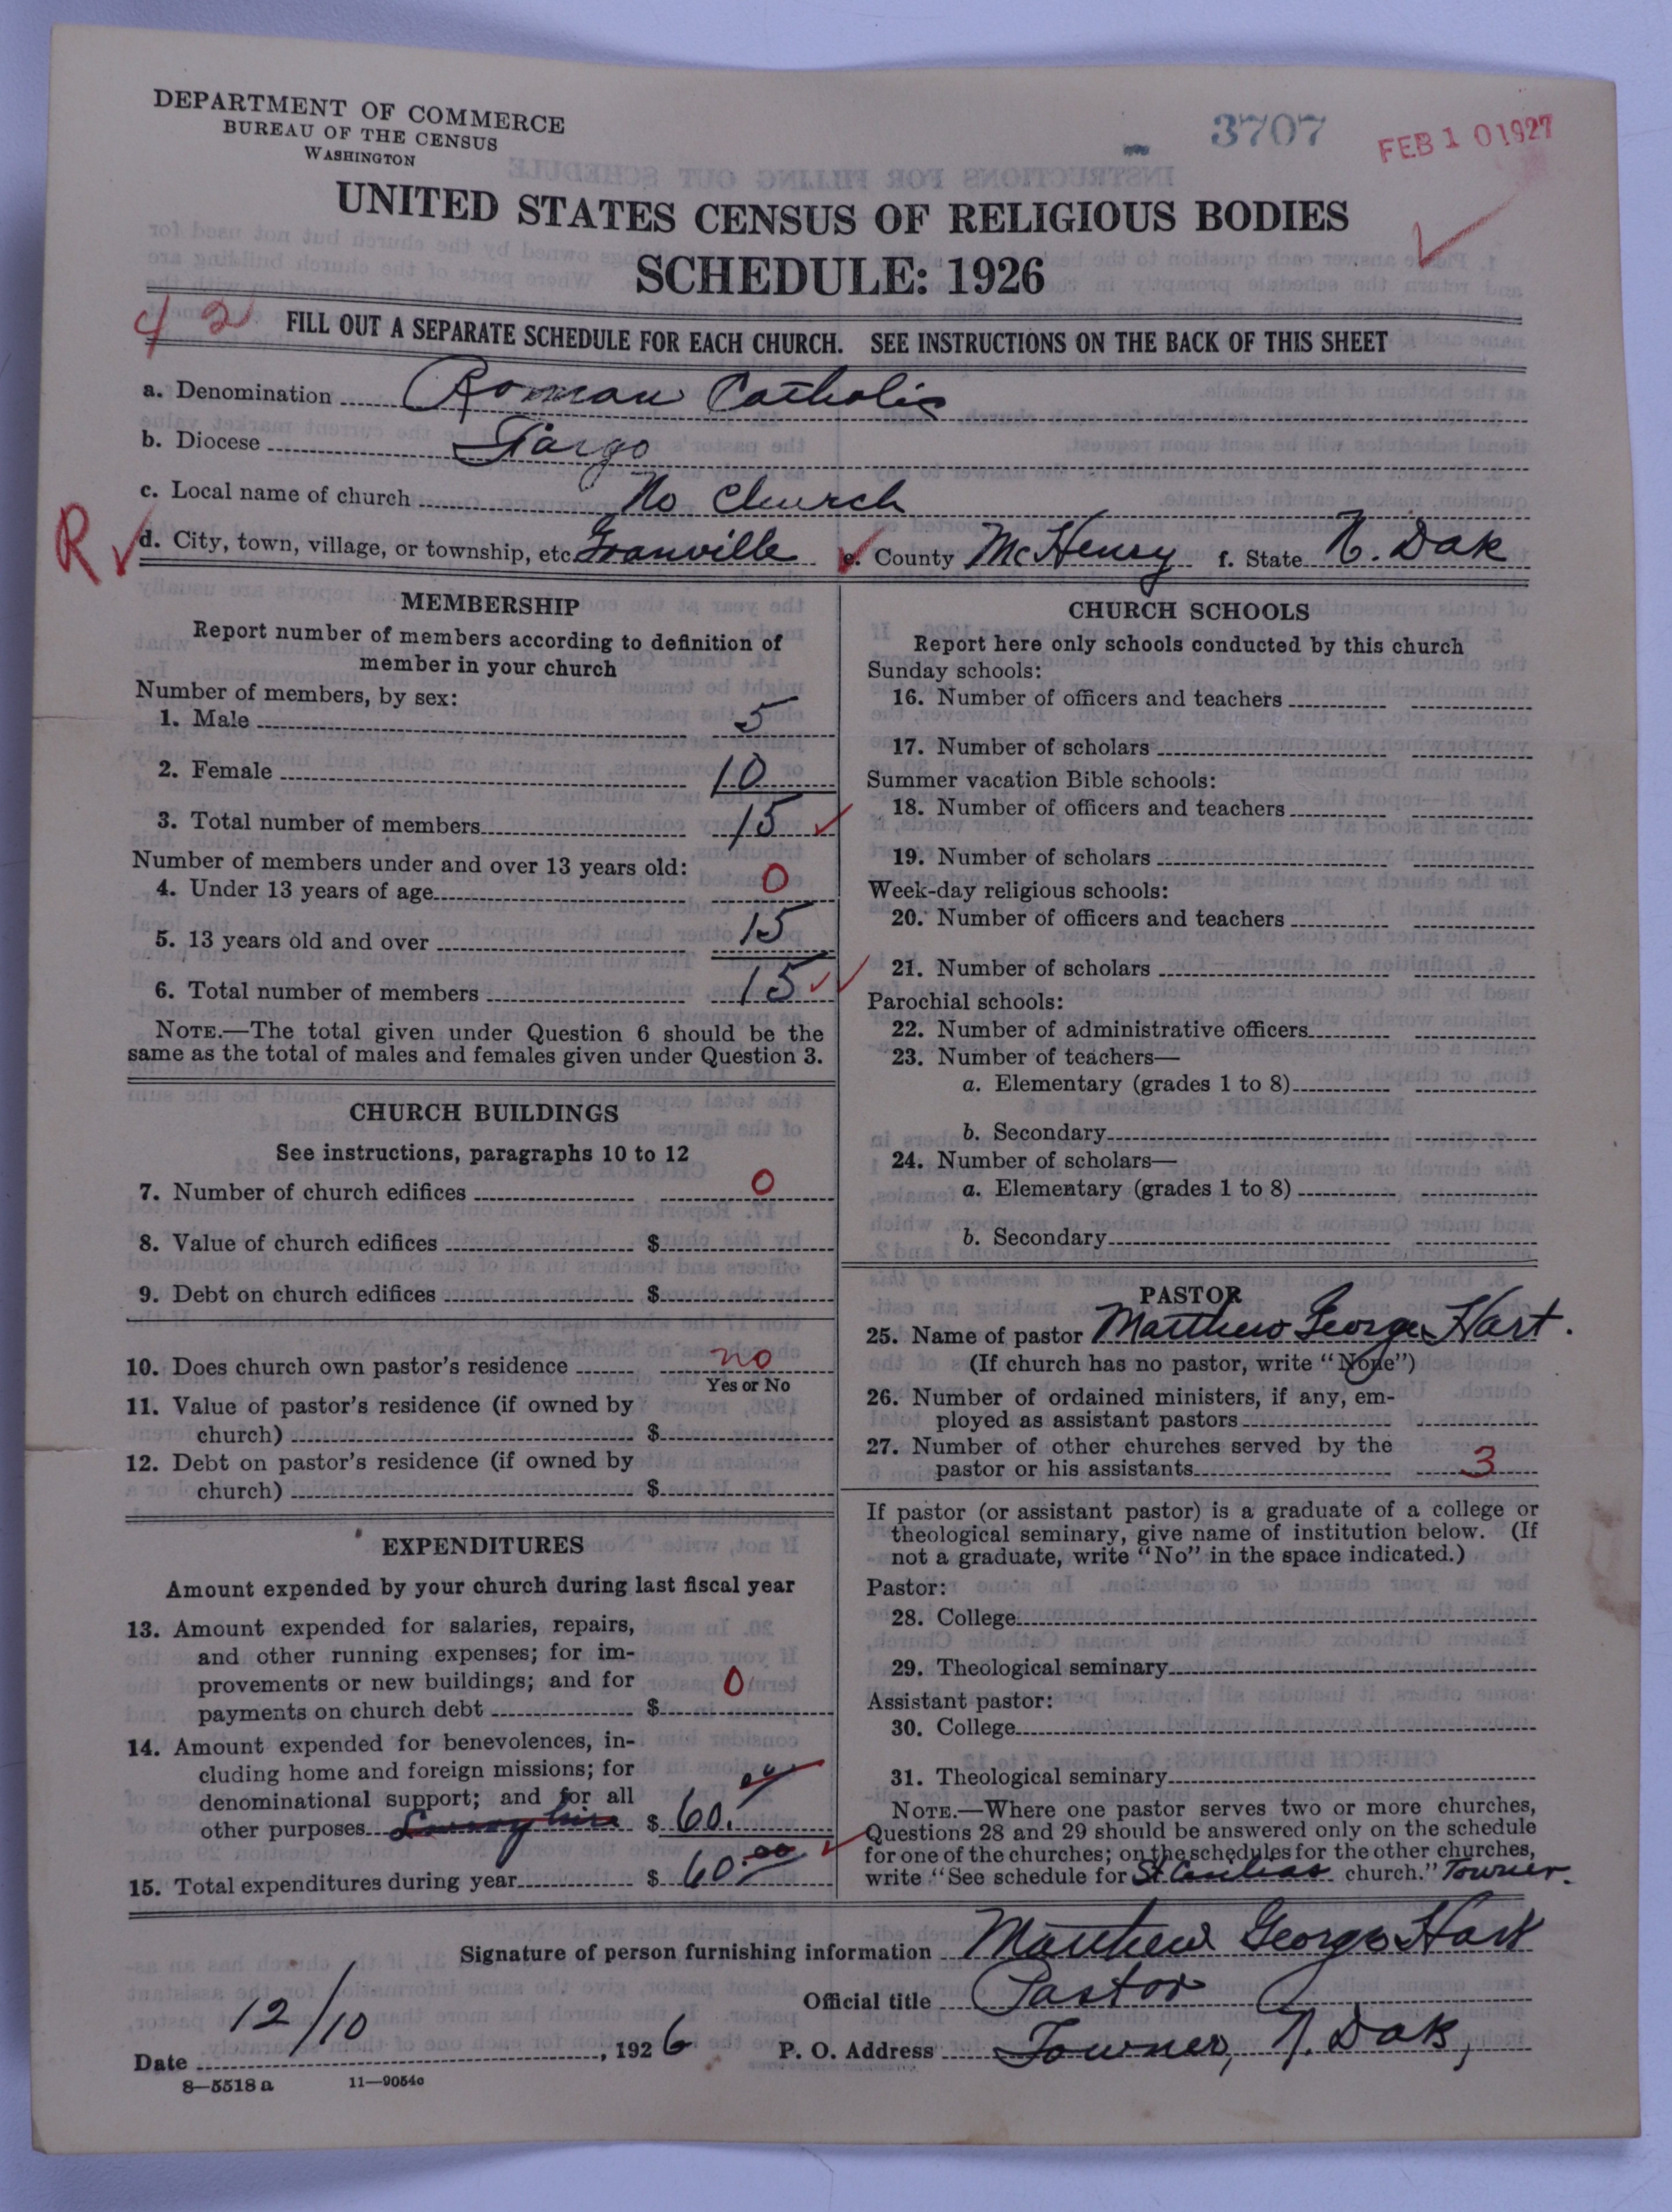 DEPARTMENT OF COMMERCE
BUREAU OF THE CENSUS
WASHINGTON
3707
FEB 10 1927
UNITED STATES CENSUS OF RELIGIOUS BODIES
SCHEDULE: 1926
42
FILL OUT A SEPARATE SCHEDULE FOR EACH CHURCH. SEE INSTRUCTIONS ON THE BACK OF THIS SHEET
a. Denomination Roman Catholic
b. Diocese Fargo
c. Local name of church No Church
R
d. City, town, village, or township, etc. Granville e. County McHenry f. State N. Dak
MEMBERSHIP
Report number of members according to definition of
member in your church
Number of members, by sex:
1. Male 5
2. Female 10
3. Total number of members 15
Number of members under and over 13 years old:
4. Under 13 years of age 0
5. 13 years old and over 15
6. Total number of members 15
NOTE.—The total given under Question 6 should be the
same as the total of males and females given under Question 3.
CHURCH BUILDINGS
See instructions, paragraphs 10 to 12
7. Number of church edifices 0
8. Value of church edifices $
9. Debt on church edifices $
10. Does church own pastor's residence no
Yes or No
11. Value of pastor's residence (if owned by
church) $
12. Debt on pastor's residence (if owned by
church) $
EXPENDITURES
Amount expended by your church during last fiscal year
13. Amount expended for salaries, repairs,
and other running expenses; for im-
provements or new buildings; and for
payments on church debt $ 0
14. Amount expended for benevolences, in-
cluding home and foreign missions; for
denominational support; and for all
other purposes $ 60.00
15. Total expenditures during year $ 60.00
CHURCH SCHOOLS
Report here only schools conducted by this church
Sunday schools:
16. Number of officers and teachers
17. Number of scholars
Summer vacation Bible schools:
18. Number of officers and teachers
19. Number of scholars
Week-day religious schools:
20. Number of officers and teachers
21. Number of scholars
Parochial schools:
22. Number of administrative officers
23. Number of teachers—
a. Elementary (grades 1 to 8)
b. Secondary
24. Number of scholars—
a. Elementary (grades 1 to 8)
b. Secondary
PASTOR
25. Name of pastor Matthew George Hart.
(If church has no pastor, write "None")
26. Number of ordained ministers, if any, em-
ployed as assistant pastors
27. Number of other churches served by the
pastor or his assistants 3
If pastor (or assistant pastor) is a graduate of a college or
theological seminary, give name of institution below. (If
not a graduate, write "No" in the space indicated.)
Pastor:
28. College
29. Theological seminary
Assistant pastor:
30. College
31. Theological seminary
NOTE.—Where one pastor serves two or more churches,
Questions 28 and 29 should be answered only on the schedule
for one of the churches; on the schedules for the other churches,
write "See schedule for St church." Towner.
Signature of person furnishing information Matthew George Hart
Official title Pastor
Date 12/10, 1926 P. O. Address Towner, N. Dak,
8—5518 a 11—9054c